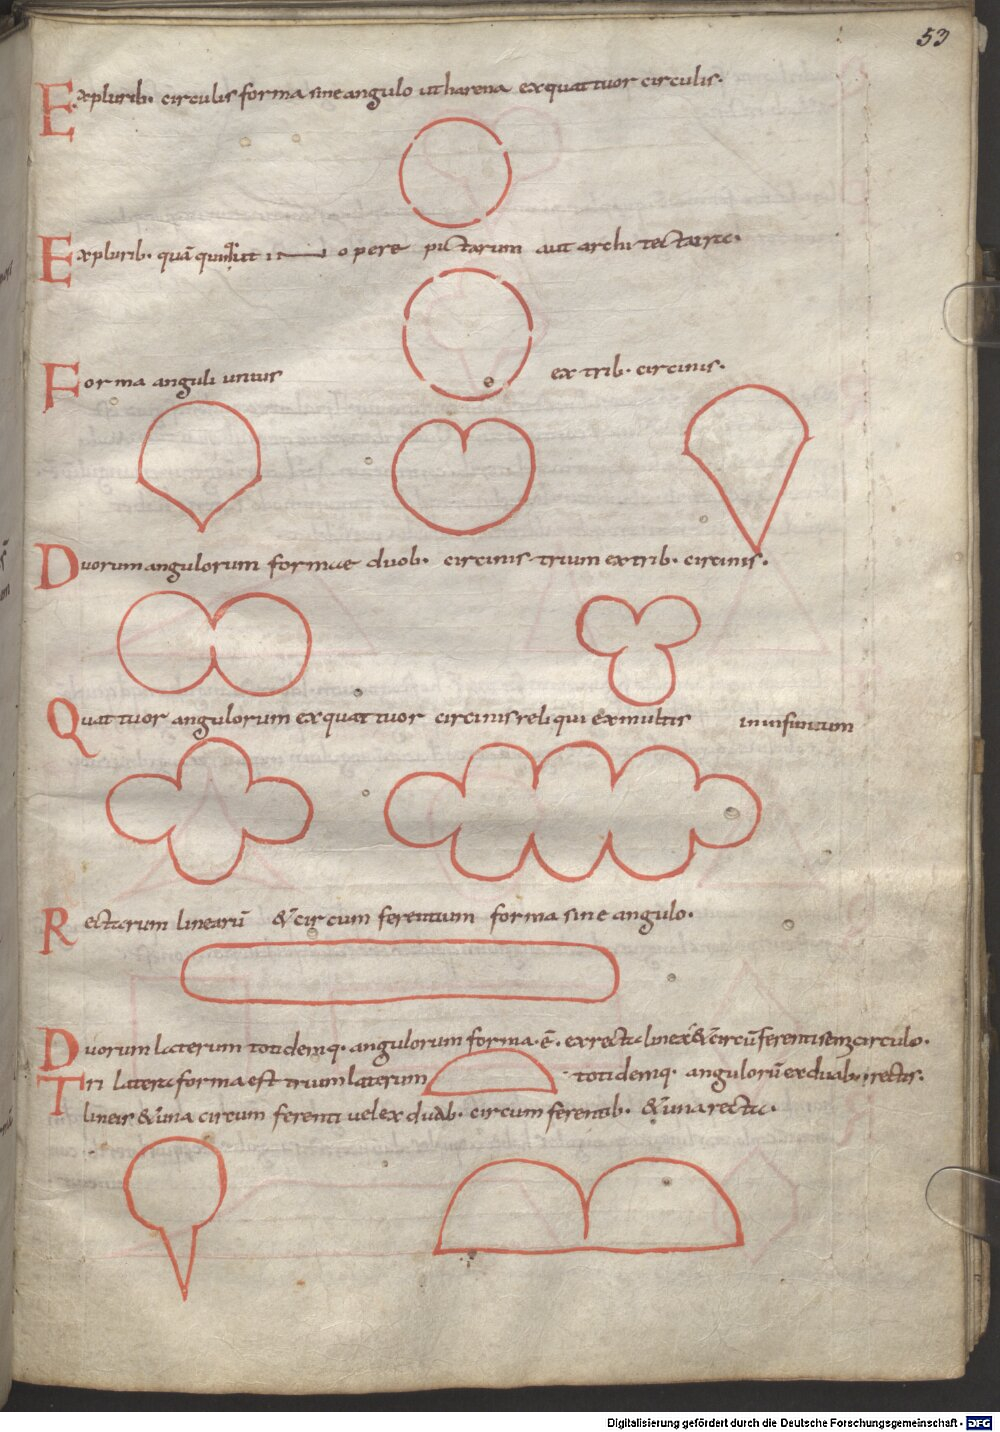 53
Explurib· circulis forma sine angulo ut harena ex quattuor circulis·
Explurib· quā opere pictarum aut architectaure·
Forma anguli unius ex trib· circinis·
Duorum angulorum formae duob· circinis trium ex trib· circinis·
Quattuor angulorum ex quattuor circinis reliqui ex multis in infinitum
Rectarum linearū & circum ferentium forma sine angulo·
Duorum laterum totidemq· angulorum forma· ē· ex recta linea & circū ferenti semicirculo·
Tri latera forma est trium laterum totidemq· angulorū ex duab· rectis·
lineis & una circum ferenti vel ex duab· circum ferentib· & una recta·
Digitalisierung gefördert durch die Deutsche Forschungsgemeinschaft - DFG